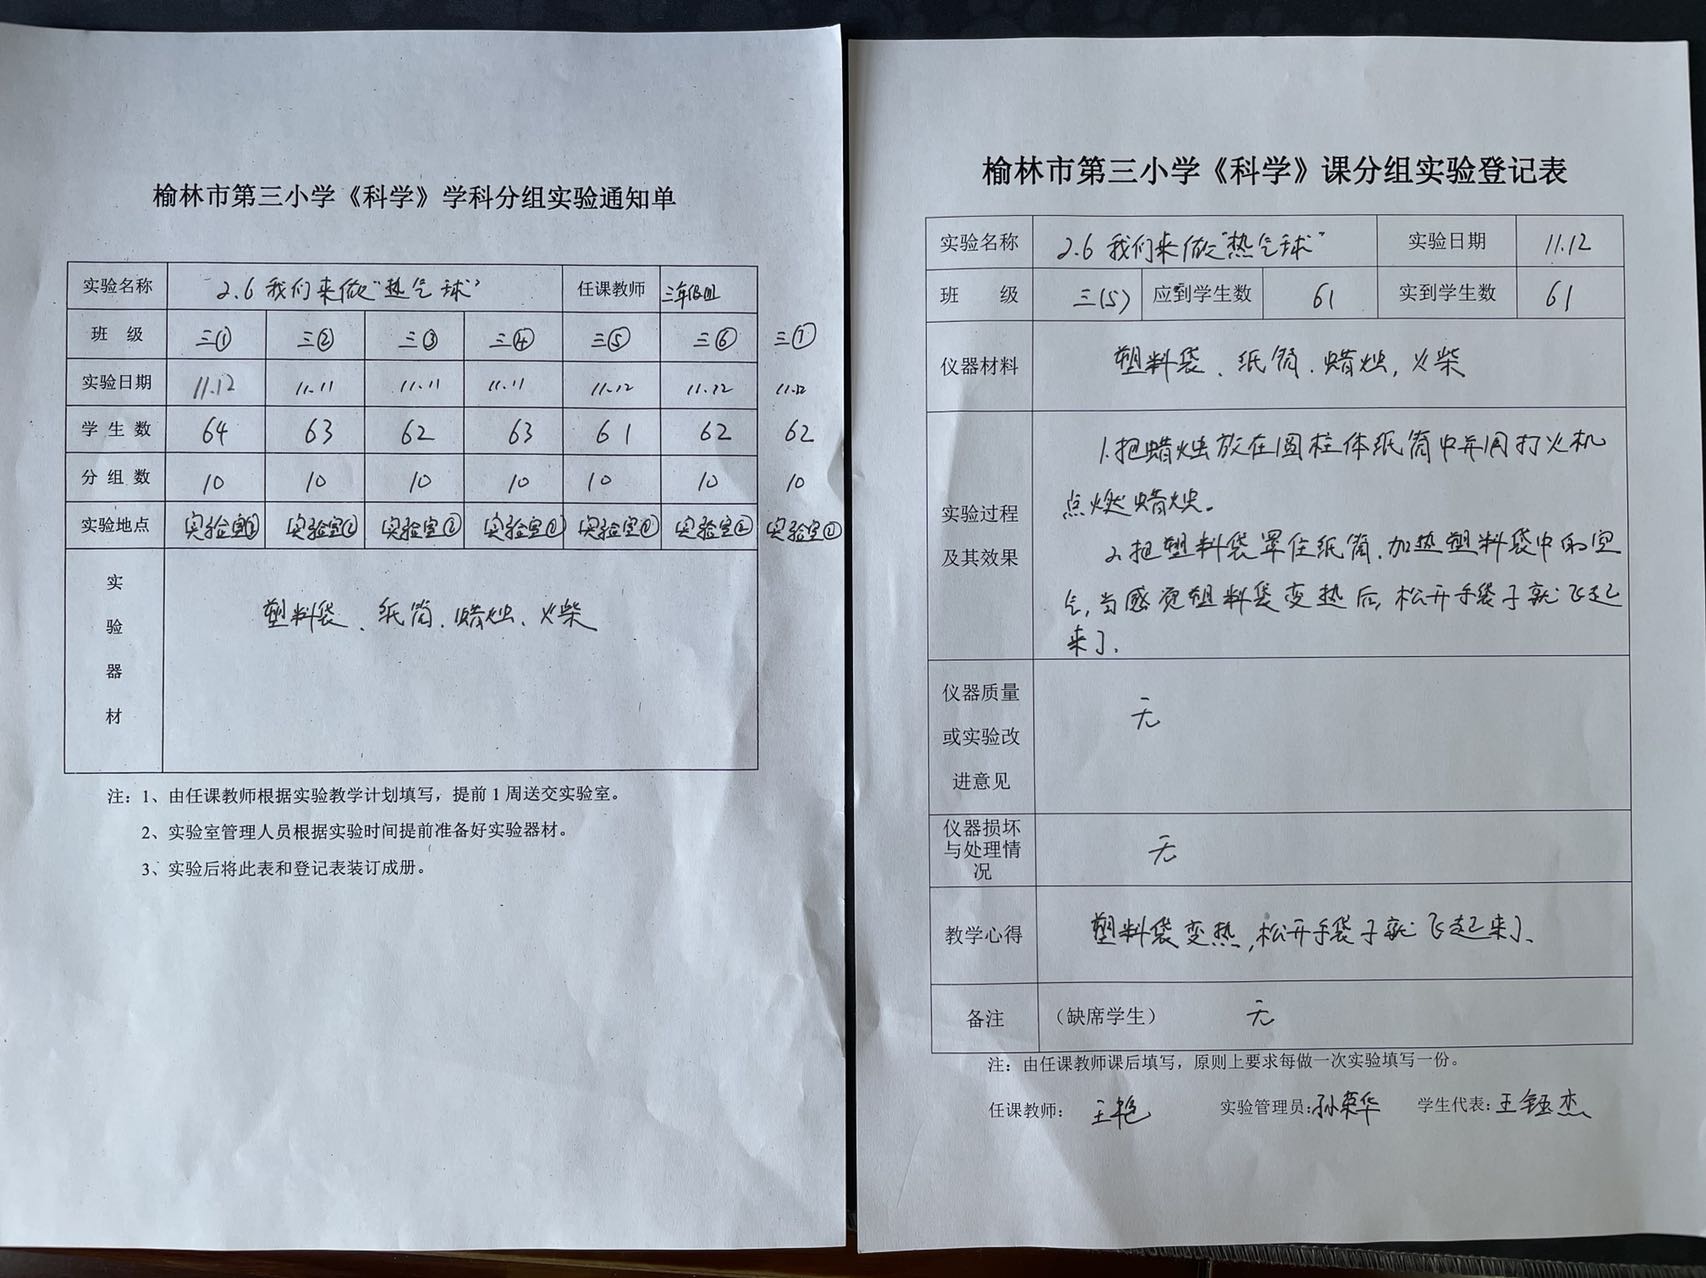 榆林市第三小学《科学》学科分组实验通知单
实验名称 2.6 我们来做“热气球” 任课教师 三年级组
班 级 三① 三② 三③ 三④ 三⑤ 三⑥ 三⑦
实验日期 11.12 11.11 11.11 11.11 11.12 11.12 11.12
学生数 64 63 62 63 61 62 62
分组数 10 10 10 10 10 10 10
实验地点 实验室② 实验室② 实验室② 实验室② 实验室② 实验室② 实验室②
实验器材
塑料袋、纸筒、蜡烛、火柴
注：1、由任课教师根据实验教学计划填写，提前1周送交实验室。
2、实验室管理人员根据实验时间提前准备好实验器材。
3、实验后将此表和登记表装订成册。
榆林市第三小学《科学》课分组实验登记表
实验名称 2.6 我们来做“热气球” 实验日期 11.12
班 级 三(5) 应到学生数 61 实到学生数 61
仪器材料 塑料袋、纸筒、蜡烛，火柴
实验过程及其效果
1.把蜡烛放在圆柱体纸筒中并用打火机
点燃蜡烛。
2.把塑料袋罩住纸筒，加热塑料袋中的空
气，当感觉塑料袋变热后，松开手袋子就飞起
来了.
仪器质量
或实验改
进意见
无
仪器损坏
与处理情
况
无
教学心得 塑料袋变热，松开手袋子就飞起来了、
备注 （缺席学生） 无
注：由任课教师课后填写，原则上要求每做一次实验填写一份。
任课教师：王艳 实验管理员：孙荣华 学生代表：王钰杰